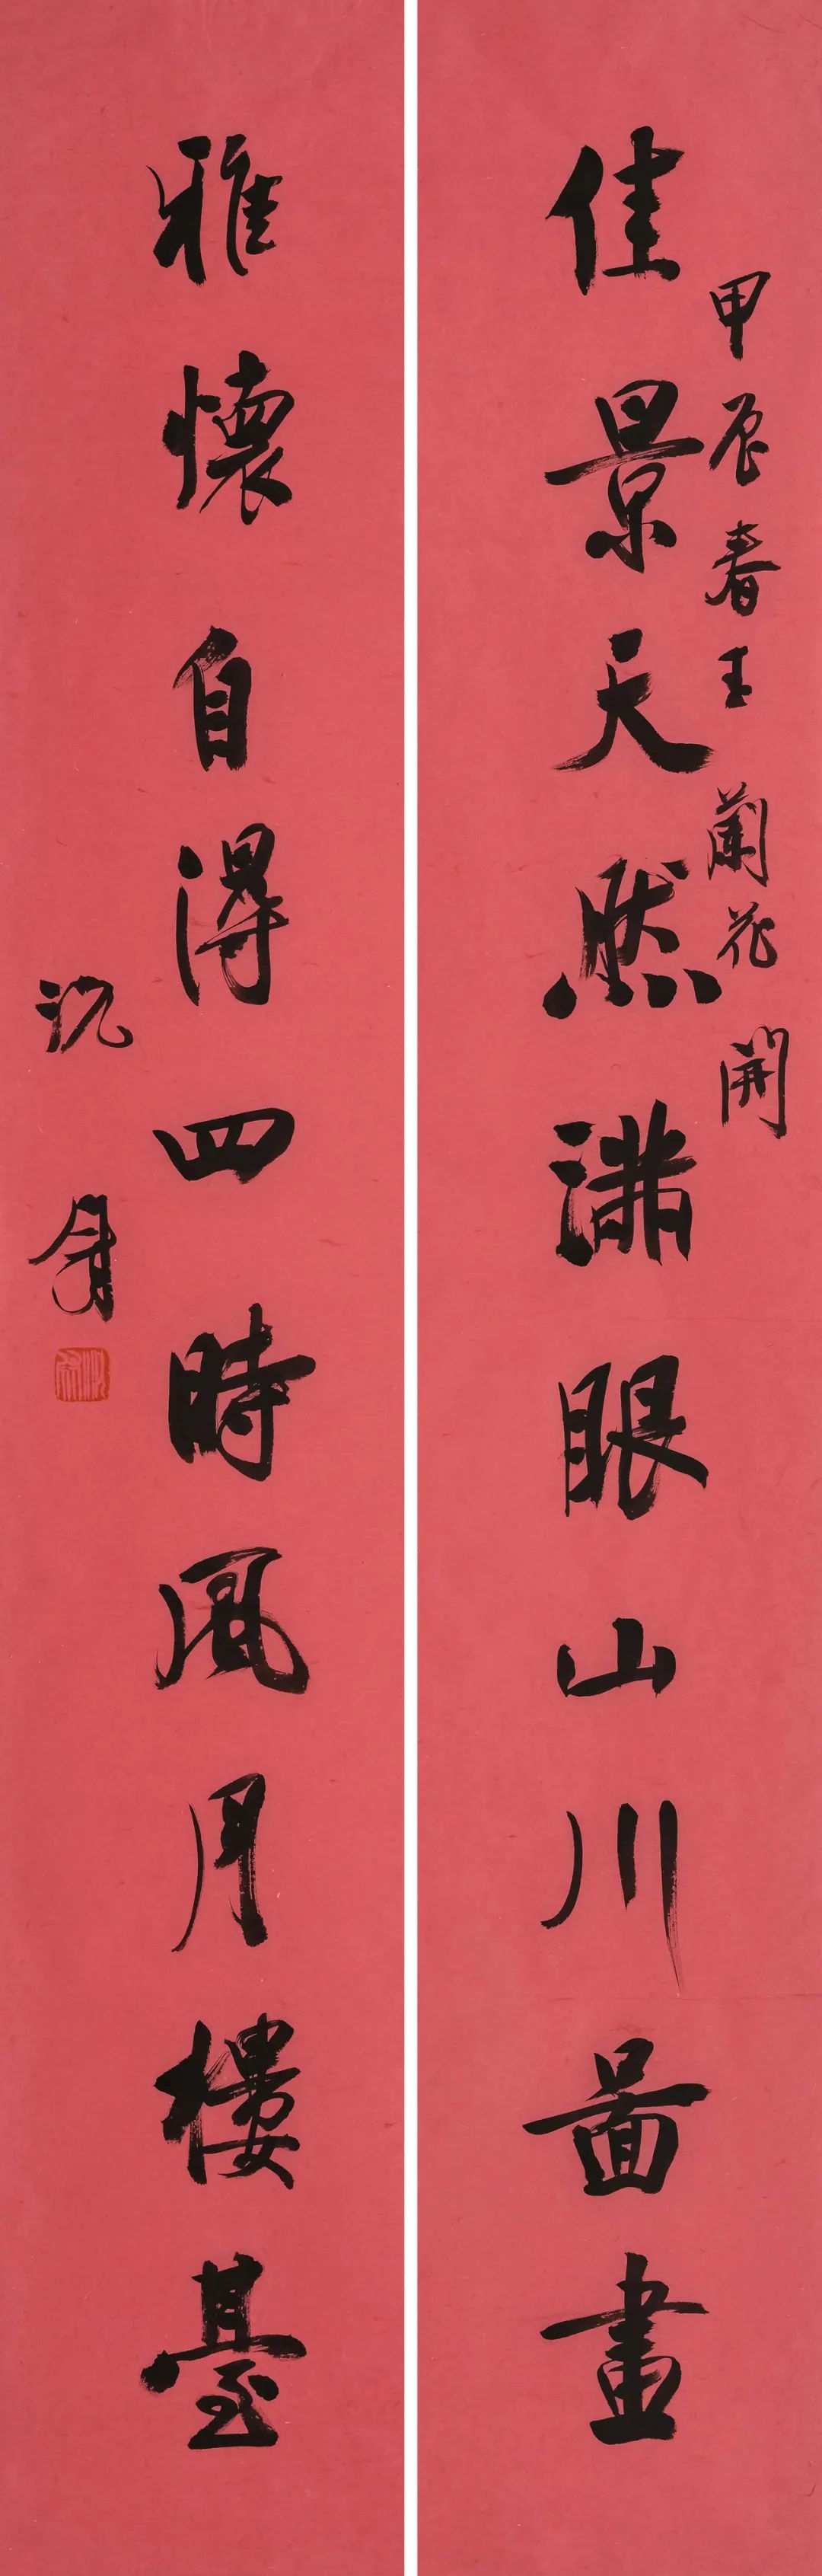 佳景天然滿眼山川圖畫
甲辰春王蘭花開
雅懷自得四時風月樓臺
沈